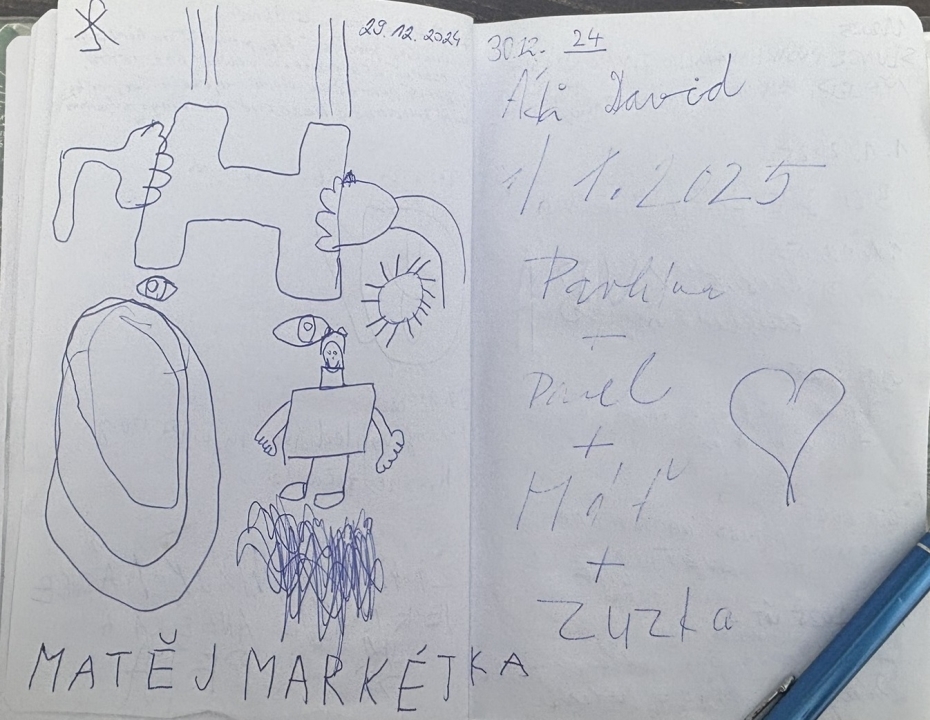 29.12.2024
MATĚJ MARKÉTKA
30.12. 24
David
1. 1. 2025
Pavlína
+
Pavel
+
Máť
+
Zuzka